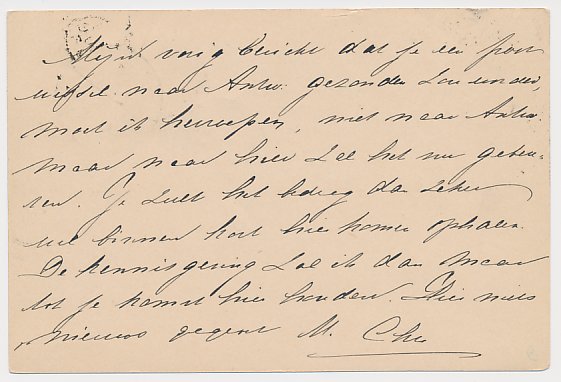 Mijn vorig bericht dat je een post
wissel naar Antw. gezonden zou worden,
moet ik herroepen, niet naar Antw.
maar naar hier zal het nu gebeu-
ren. Je zult het bedrag dan zeker
wel binnen kort hier komen ophalen.
De kennisgeving zal ik dan maar
tot je komst hier houden. Hier niets
nieuws gegroet M.